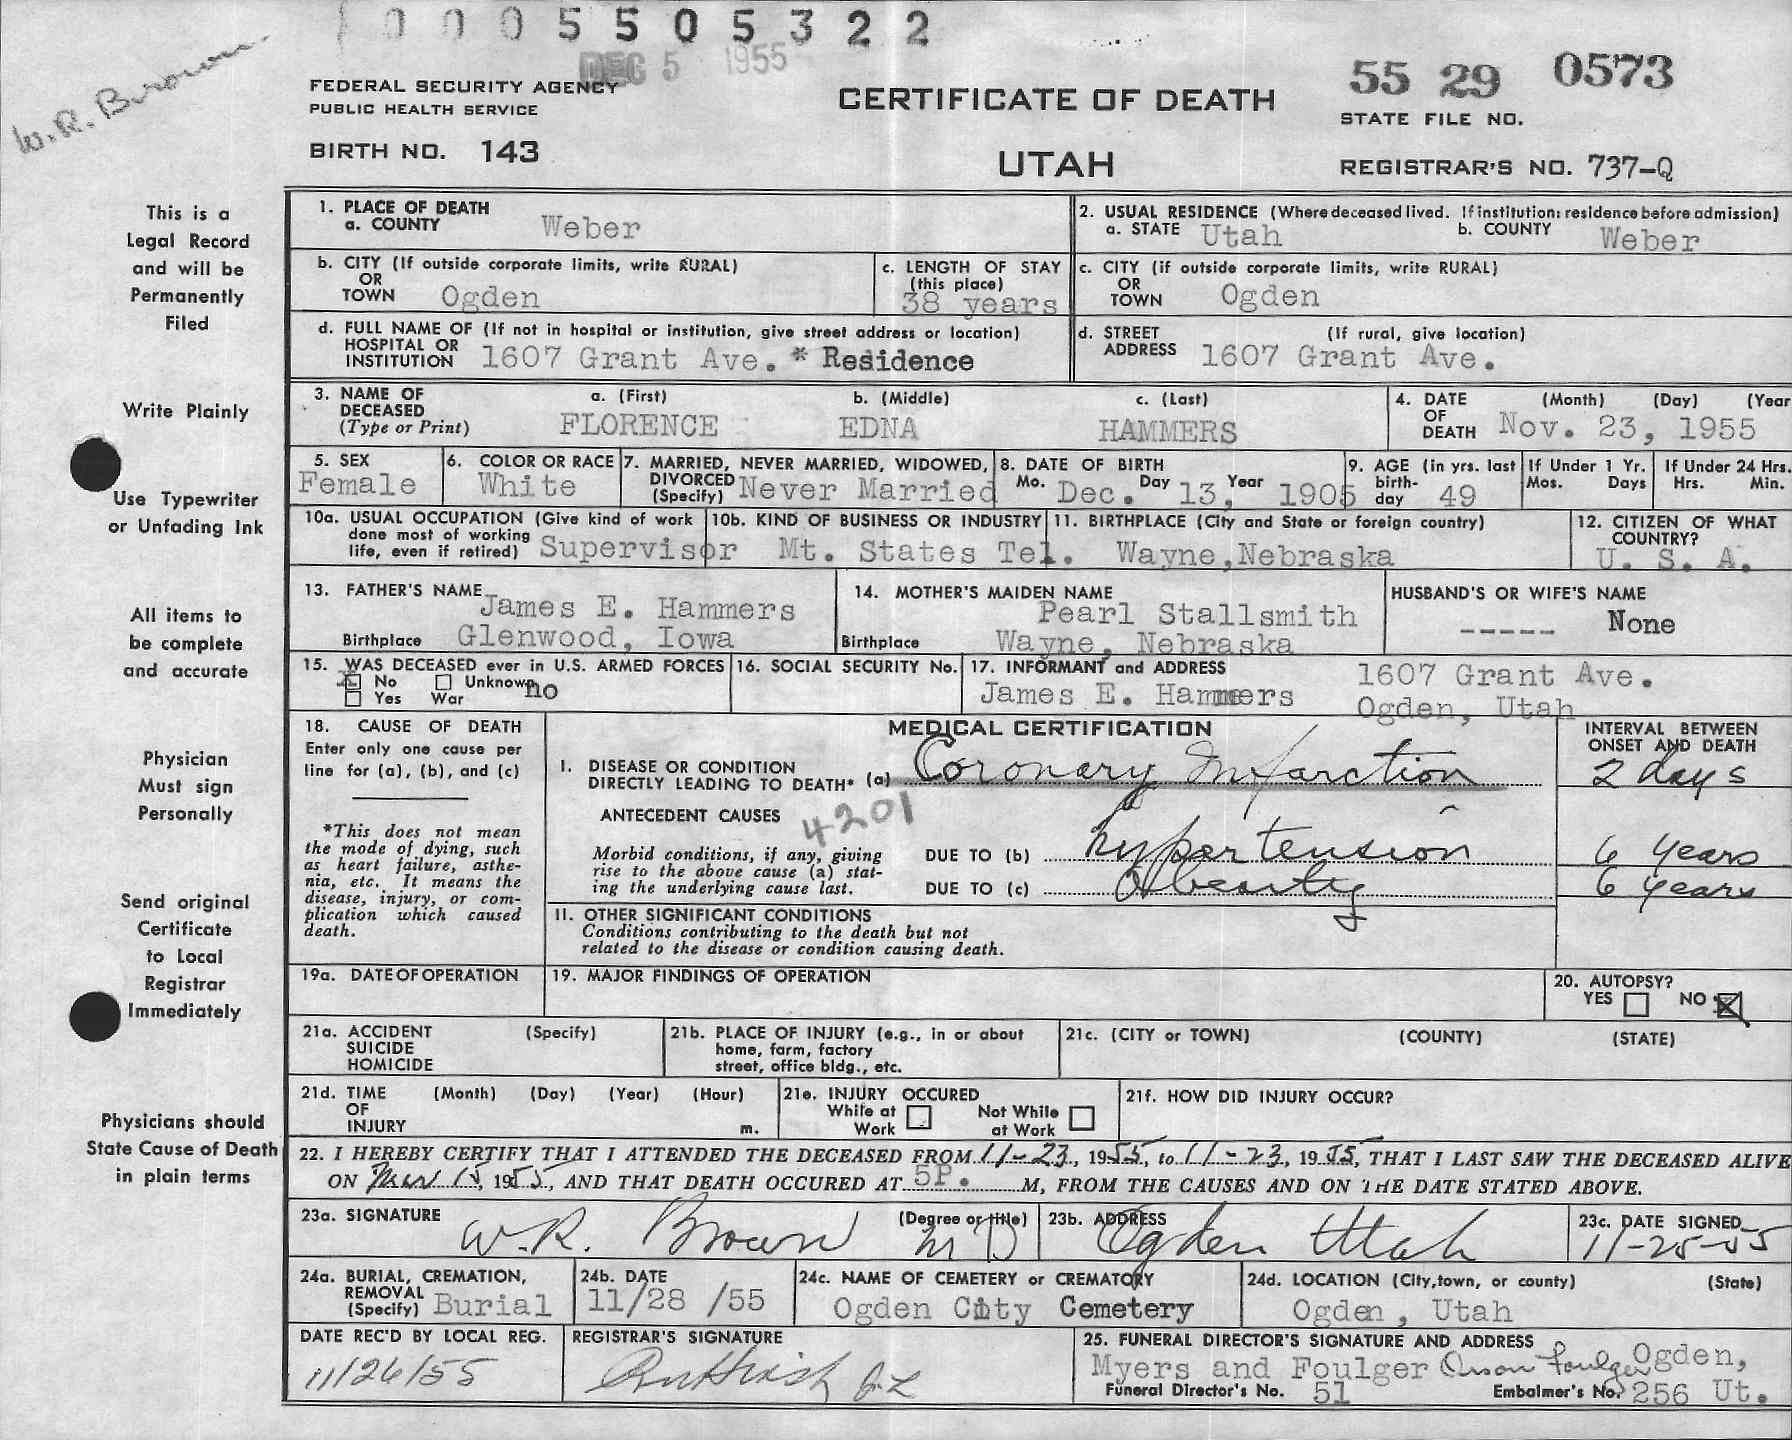 10005505322
DEC 5 1955
W. R. Brown
55 29 0573
FEDERAL SECURITY AGENCY
PUBLIC HEALTH SERVICE
CERTIFICATE OF DEATH
STATE FILE NO.
BIRTH NO. 143
UTAH
REGISTRAR'S NO. 737-Q
This is a
Legal Record
and will be
Permanently
Filed
Write Plainly
Use Typewriter
or Unfading Ink
All items to
be complete
and accurate
Physician
Must sign
Personally
Send original
Certificate
to Local
Registrar
Immediately
Physicians should
State Cause of Death
in plain terms
1. PLACE OF DEATH
a. COUNTY Weber
2. USUAL RESIDENCE (Where deceased lived. If institution: residence before admission)
a. STATE Utah b. COUNTY Weber
b. CITY (If outside corporate limits, write RURAL)
OR
TOWN Ogden
c. LENGTH OF STAY
(this place)
38 years
c. CITY (if outside corporate limits, write RURAL)
OR
TOWN Ogden
d. FULL NAME OF (If not in hospital or institution, give street address or location)
HOSPITAL OR
INSTITUTION 1607 Grant Ave. * Residence
d. STREET (If rural, give location)
ADDRESS 1607 Grant Ave.
3. NAME OF a. (First) b. (Middle) c. (Last)
DECEASED
(Type or Print) FLORENCE EDNA HAMMERS
4. DATE (Month) (Day) (Year
OF
DEATH Nov. 23, 1955
5. SEX
Female
6. COLOR OR RACE
White
7. MARRIED, NEVER MARRIED, WIDOWED,
DIVORCED
(Specify) Never Married
8. DATE OF BIRTH
Mo. Dec. Day 13, Year 1905
9. AGE (in yrs. last
birth-
day 49
If Under 1 Yr.
Mos. Days
If Under 24 Hrs.
Hrs. Min.
10a. USUAL OCCUPATION (Give kind of work
done most of working
life, even if retired) Supervisor
10b. KIND OF BUSINESS OR INDUSTRY
Mt. States Tel.
11. BIRTHPLACE (City and State or foreign country)
Wayne, Nebraska
12. CITIZEN OF WHAT
COUNTRY?
U. S. A.
13. FATHER'S NAME
James E. Hammers
Birthplace Glenwood, Iowa
14. MOTHER'S MAIDEN NAME
Pearl Stallsmith
Birthplace Wayne, Nebraska
HUSBAND'S OR WIFE'S NAME
----- None
15. WAS DECEASED ever in U.S. ARMED FORCES
X No Unknown no
Yes War
16. SOCIAL SECURITY No.
17. INFORMANT and ADDRESS
James E. Hammers
1607 Grant Ave.
Ogden, Utah
18. CAUSE OF DEATH
Enter only one cause per
line for (a), (b), and (c)
*This does not mean
the mode of dying, such
as heart failure, asthe-
nia, etc. It means the
disease, injury, or com-
plication which caused
death.
MEDICAL CERTIFICATION
INTERVAL BETWEEN
ONSET AND DEATH
I. DISEASE OR CONDITION
DIRECTLY LEADING TO DEATH* (a) Coronary Infarction 2 days
ANTECEDENT CAUSES 4201
Morbid conditions, if any, giving
rise to the above cause (a) stat-
ing the underlying cause last.
DUE TO (b) hypertension 6 years
DUE TO (c) Obeaity 6 years
II. OTHER SIGNIFICANT CONDITIONS
Conditions contributing to the death but not
related to the disease or condition causing death.
19a. DATE OF OPERATION
19. MAJOR FINDINGS OF OPERATION
20. AUTOPSY?
YES NO X
21a. ACCIDENT (Specify)
SUICIDE
HOMICIDE
21b. PLACE OF INJURY (e.g., in or about
home, farm, factory
street, office bldg., etc.
21c. (CITY or TOWN) (COUNTY) (STATE)
21d. TIME (Month) (Day) (Year) (Hour)
OF
INJURY m.
21e. INJURY OCCURED
While at Work
Not While at Work
21f. HOW DID INJURY OCCUR?
22. I HEREBY CERTIFY THAT I ATTENDED THE DECEASED FROM 11-23, 1955, to 11-23, 1955, THAT I LAST SAW THE DECEASED ALIVE
ON 15, 1955, AND THAT DEATH OCCURED AT 5P. M, FROM THE CAUSES AND ON THE DATE STATED ABOVE.
23a. SIGNATURE (Degree or title)
W. R. Brown MD
23b. ADDRESS
Ogden Utah
23c. DATE SIGNED
11-25-55
24a. BURIAL, CREMATION,
REMOVAL
(Specify) Burial
24b. DATE
11/28 /55
24c. NAME OF CEMETERY or CREMATORY
Ogden City Cemetery
24d. LOCATION (City, town, or county) (State)
Ogden, Utah
DATE REC'D BY LOCAL REG.
11/26/55
REGISTRAR'S SIGNATURE
25. FUNERAL DIRECTOR'S SIGNATURE AND ADDRESS
Myers and Foulger Orson Foulger Ogden,
Funeral Director's No. 51 Embalmer's No. 256 Ut.